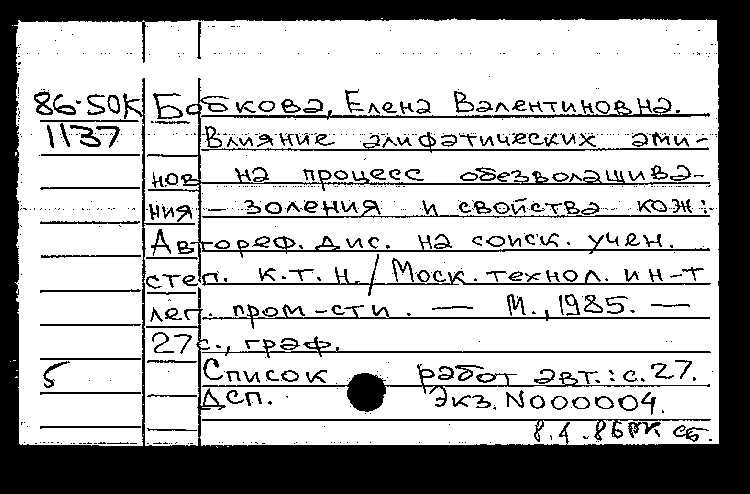 86-50К Бобкова, Елена Валентиновна.
1137 Влияние алифатических ами-
нов на процесс обезволашива-
ния - золения и свойства кож:
Автореф. дис. на соиск. учен.
степ. к.т.н. / Моск. технол. ин-т
лег. пром-сти. — М., 1985. —
27 с., граф.
5 Список работ авт.: с. 27.
ДСП. Экз. N000004.
8.4.86